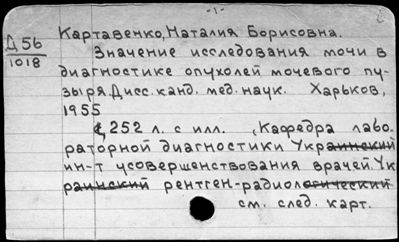 -1-
Картавенко, Наталия Борисовна.
Д 56
1018
Значение исследования мочи в
диагностике опухолей мочевого пу-
зыря. Дисс. канд. мед. наук. Харьков,
1955
252 л. с илл. (Кафедра лабо-
раторной диагностики Украинский
ин-т усовершенствования врачей. Ук
раинский рентген-радиологический
см. след. карт.